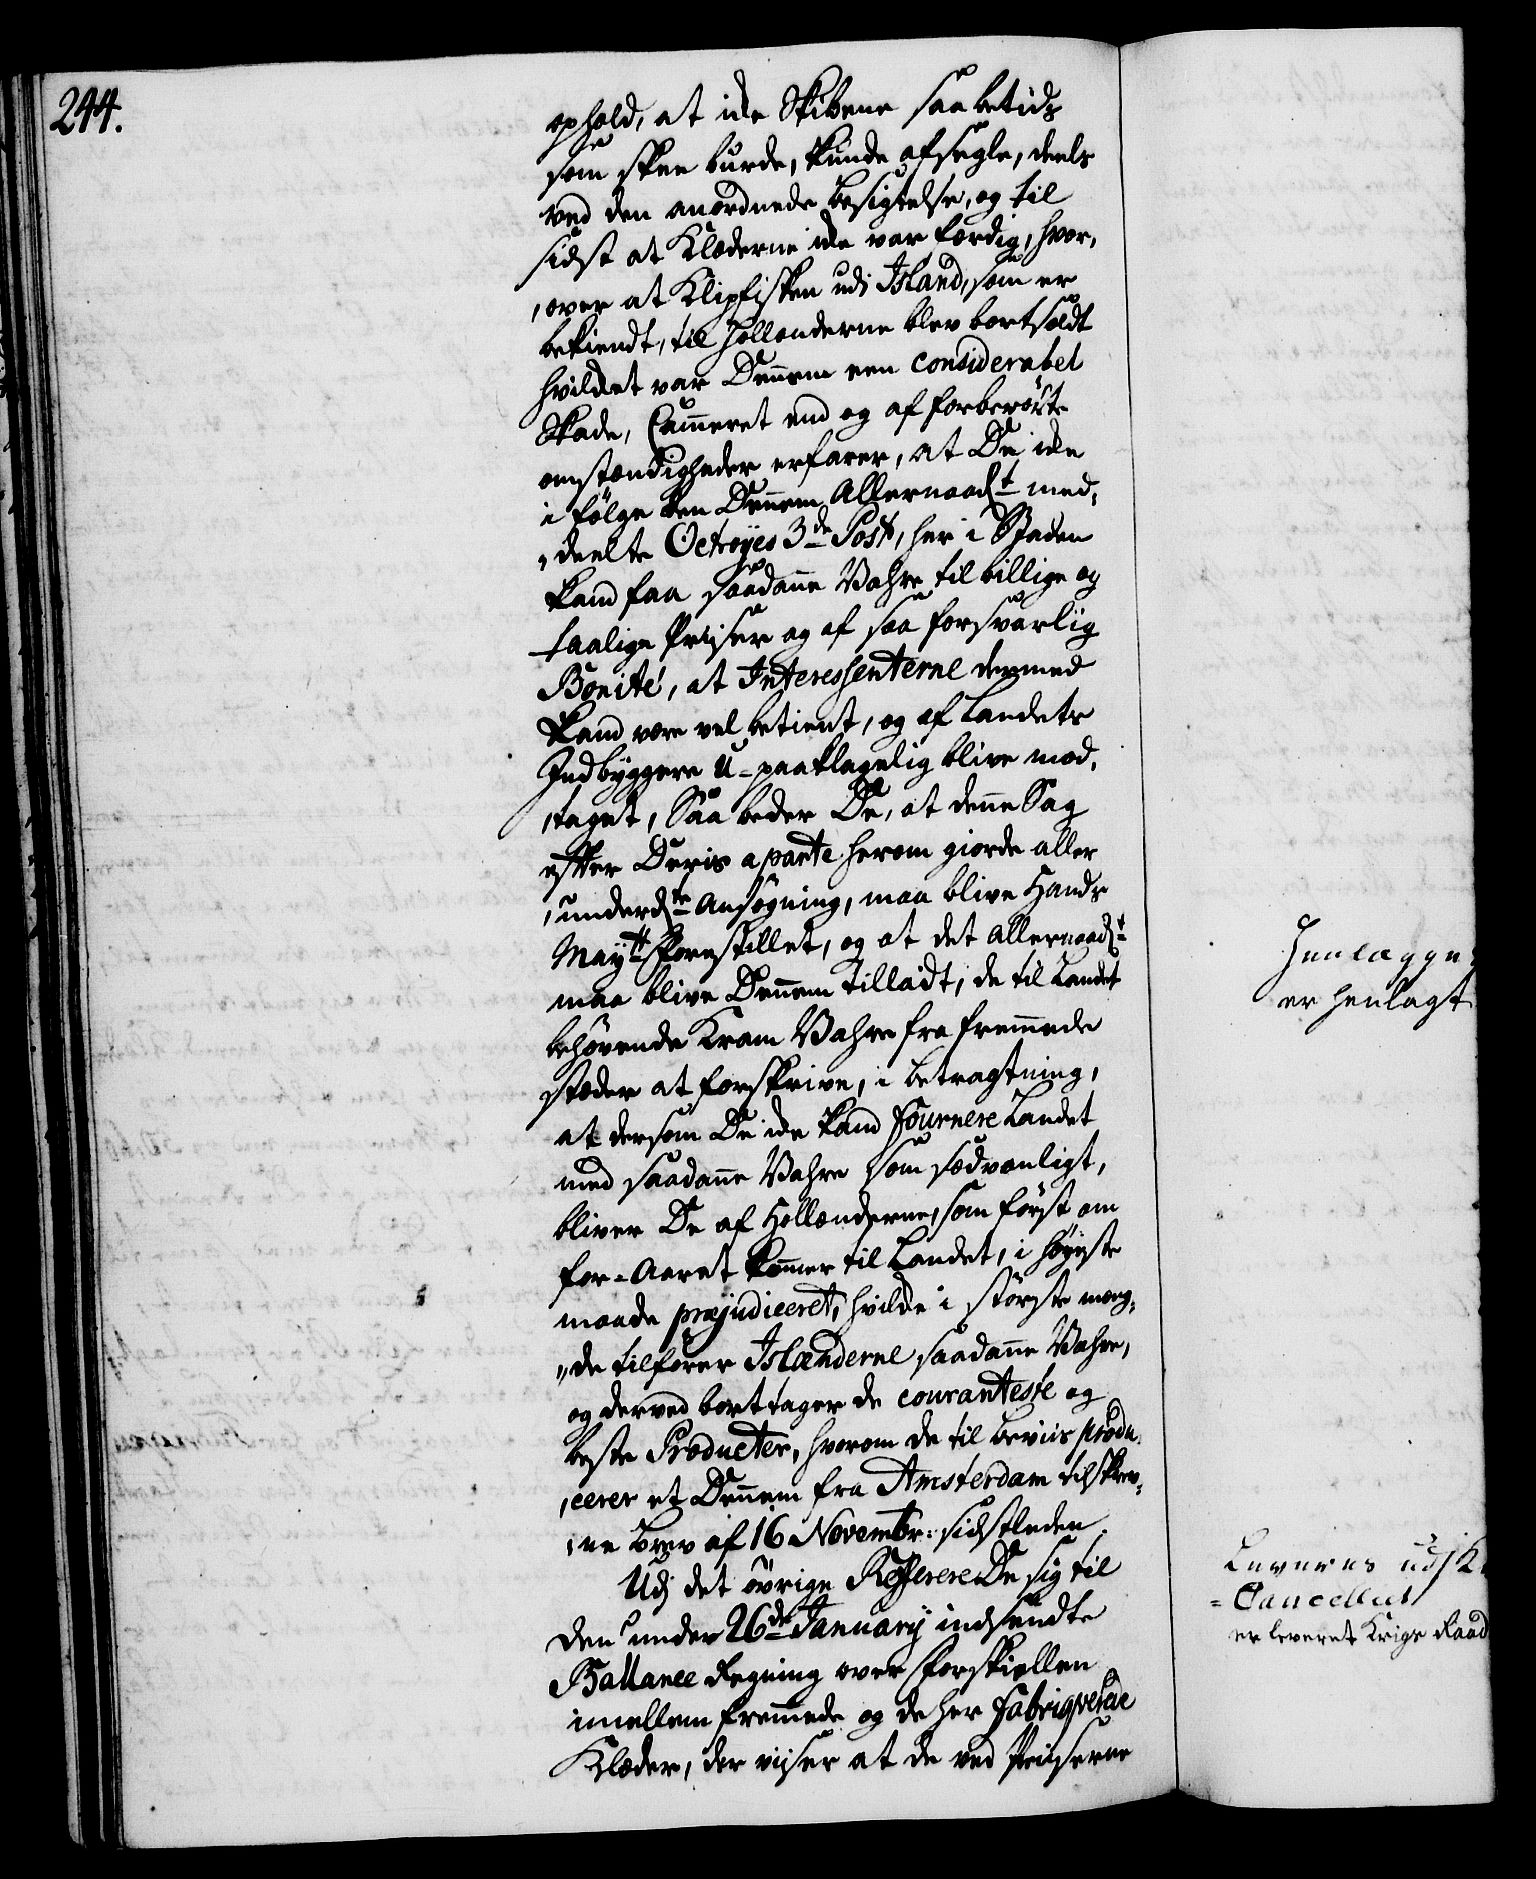 244.
ophold, at icke Skibene saa betids
som skee burde, kunde afsegle, deels
ved den anordnede besigtelse, og til
sidst at Klæderne icke var færdig, hvor,
,over at Klipfisken udi Island, som er
bekiendt, til Hollænderne blev bortsoldt
hvilcket var Dennem een considerabel
Skade, Cammeret end og af forberørte
omstændigheder erfarer, at De icke
i følge den Dennem Allernaadst med,
,deelte Octroyes 3de Post, her i Staden
kand faa saadanne Vahre til billige og
taalige Prijser og af saa forsvarlig
Bonité, at Interessenterne dermed
kand være vel betient, og af Landets
Indbyggere U-paaklagelig blive mod,
,taget, Saa beder De, at denne Sag
efter Deris aparte herom giorde aller
,underdste Ansøgning, maa blive Hands
Maytt forestillet, og at det allernaadst
maa blive Dennem tilladt, de til Landet
behøvende Kram Vahre fra fremmede
stæder at forskrive, i betragtning,
at dersom De icke kand fournere Landet
med saadanne Vahre som sædvanligt,
bliver De af Hollænderne, som først om
for-Aaret kommer til Landet, i høyeste
maade præjudiceret, hvilcke i største mæng,
,de tilfører Islænderne saadanne Vahre,
og derved borttager de couranteste og
beste Producter, hvorom de til beviis produ,
,cerer et Dennem fra Amsterdam tilskrev,
,ne brev af 16 Novembr: sidstleden.
Udj det øvrige Refferere De sig til
den under 26de January indsendte
Ballance Regning over forskiellen
imellem fremmede og de her fabriqverede
Klæder, der viser at de ved Prijserne
Henlægges
er henlagt
Leveres udj K
=Cancelliet
er leveret Krigs Raad